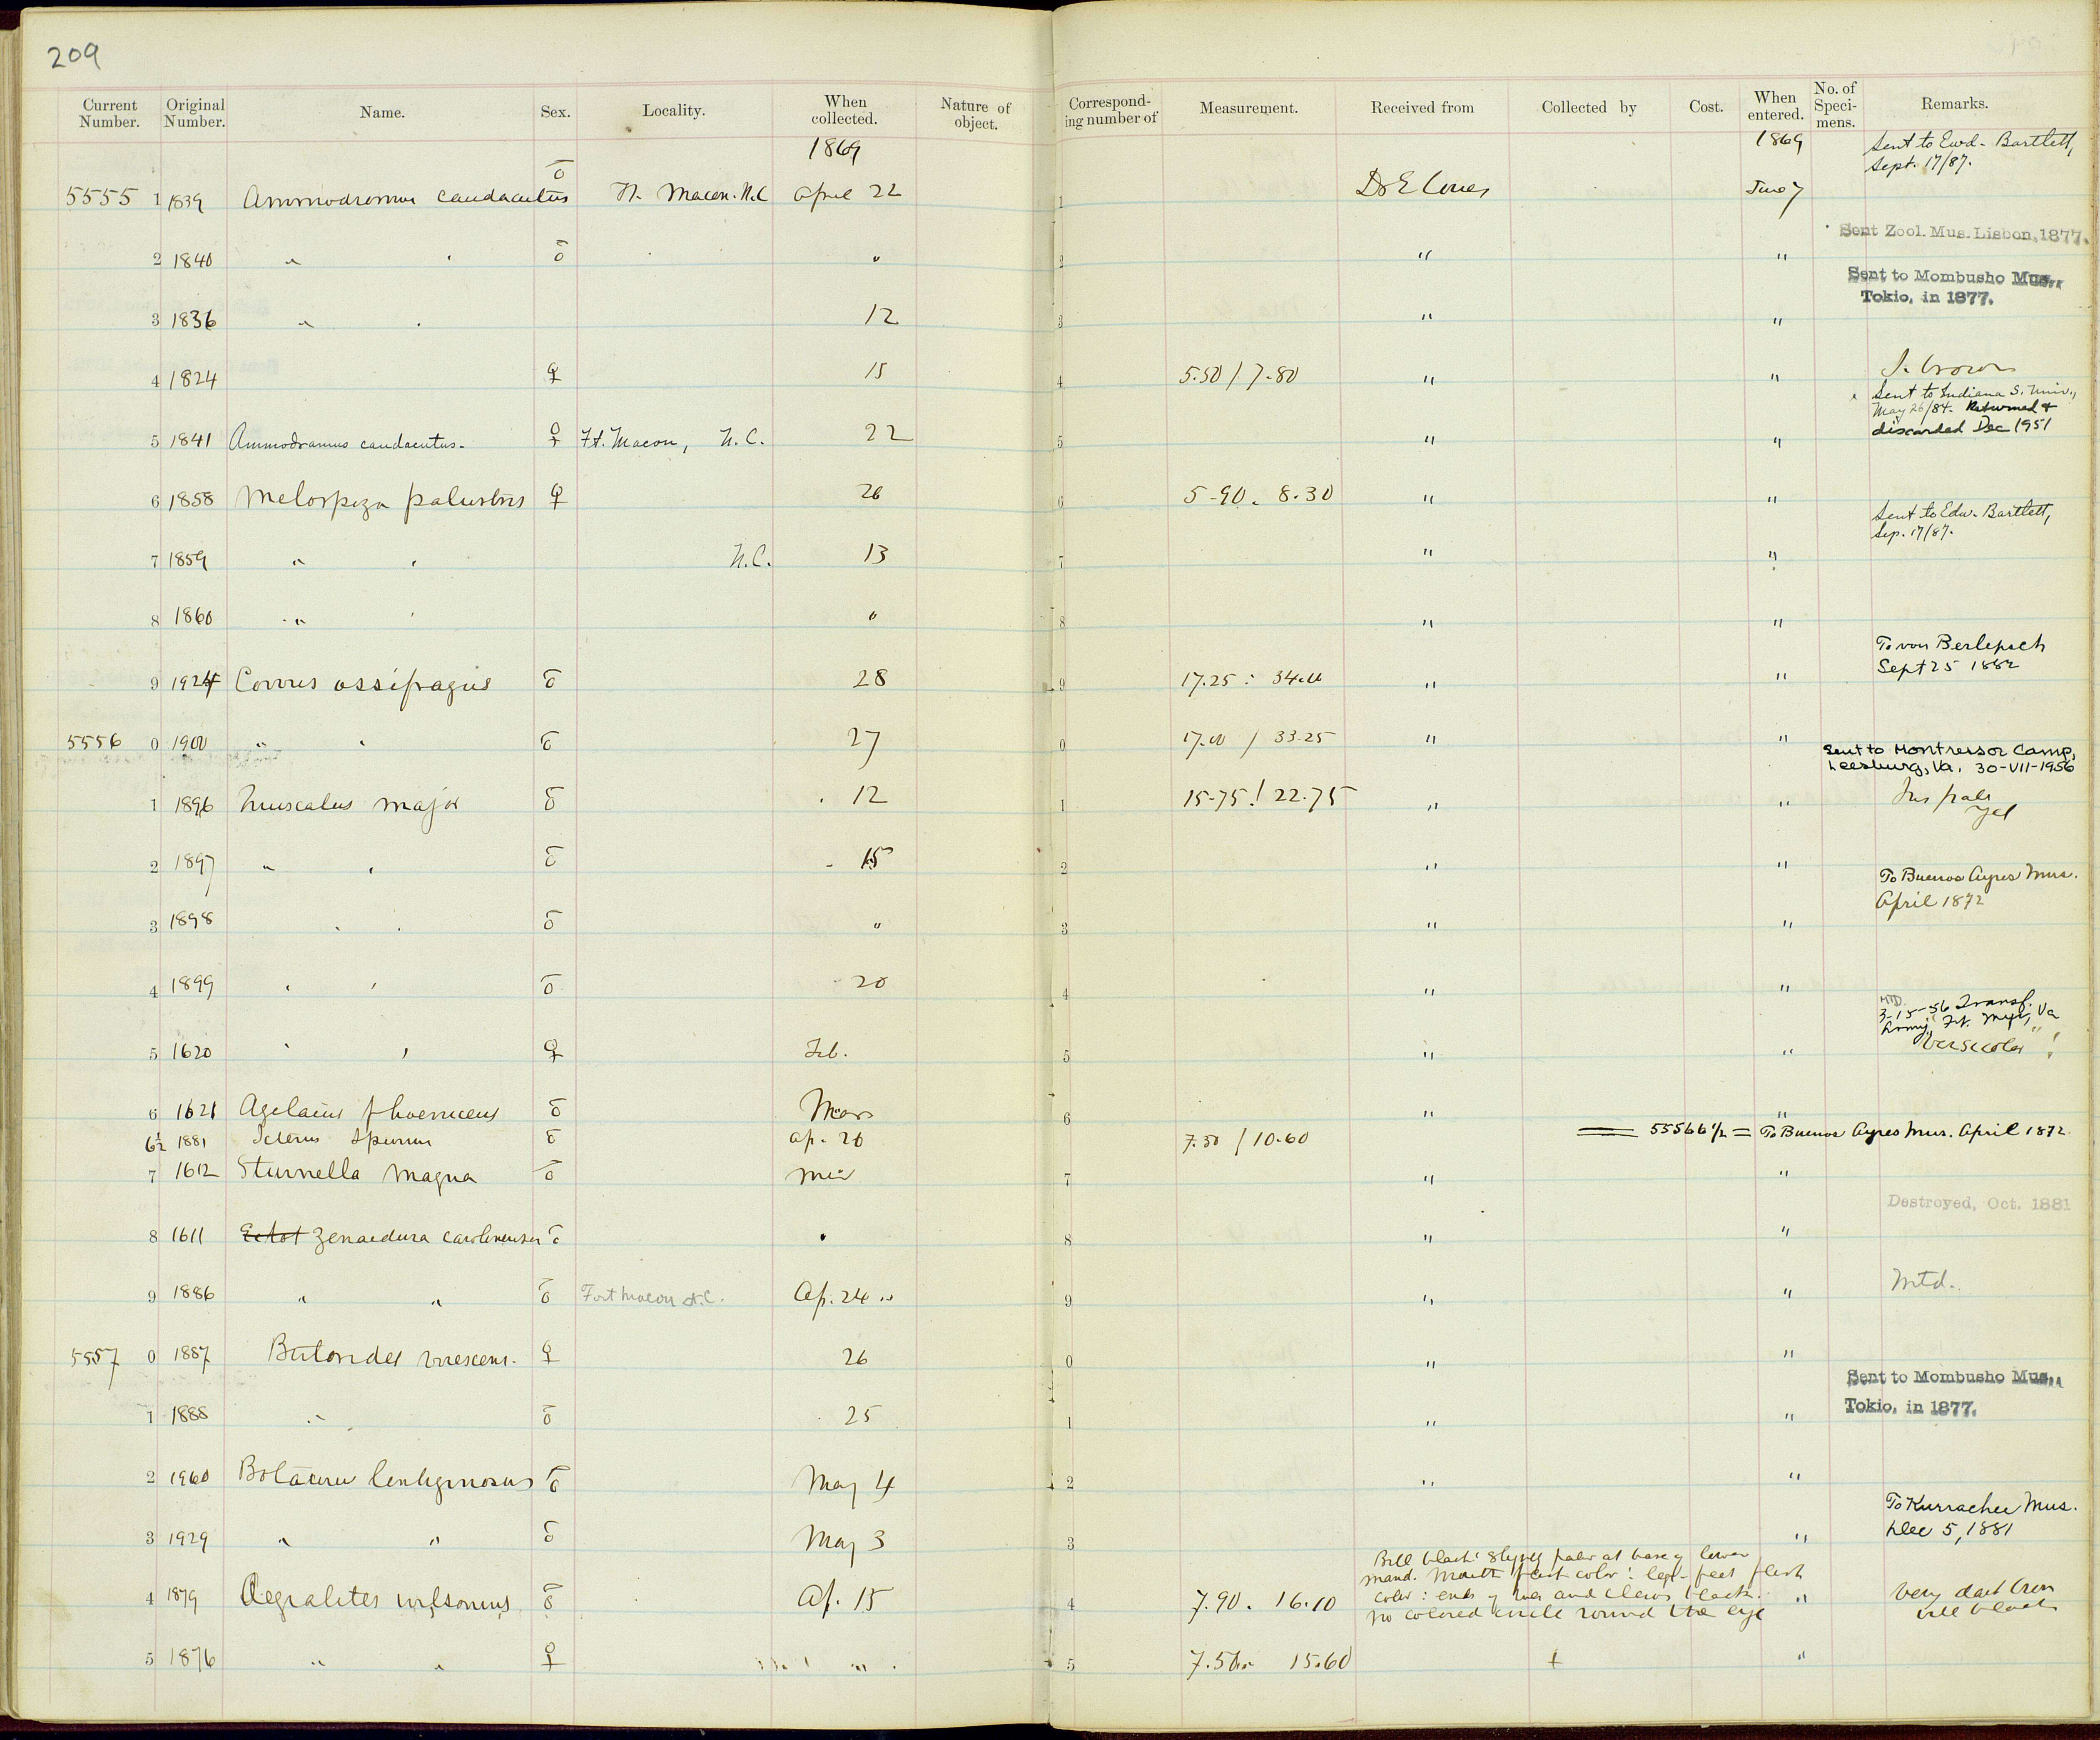 209
Current Number. Original Number. Name. Sex. Locality. When collected. Nature of object. Corresponding number of Measurement. Received from Collected by Cost. When entered. No. of Specimens. Remarks.
1869 1869 Sent to Ewd. Bartlett, Sept. 17/87.
5555 1 1839 Ammodromus caudacutus ♂ Ft. Macon. N.C April 22 1 Dr E Coues June 7
Sent Zool. Mus. Lisbon, 1877.
2 1840 " " ♂ " 2 " "
Sent to Mombusho Mus., Tokio, in 1877.
3 1836 " " 12 3 " "
4 1824 ♀ 15 4 5.50 / 7.80 " "
Sent to Indiana S. Univ., May 26/84. Returned & discarded Dec 1951
5 1841 Ammodramus caudacutus. ♀ Ft. Macon, N.C. 22 5 " "
6 1858 Melospiza palustris ♀ 26 6 5.90. 8.30 " "
Sent to Edw. Bartlett, Sep. 17/87.
7 1859 " " N.C. 13 7 " "
8 1860 " " " 8 " "
To von Berlepsch Sept 25 1882
9 1924 Corvus ossifragus ♂ 28 9 17.25 : 34.00 " "
5556 0 1900 " " ♂ 27 0 17.00 / 33.25 " "
Sent to Montressor Camp, Leesburg, Va. 30-VII-1956
1 1896 Quiscalus major ♂ 12 1 15.75 / 22.75 " " Iris pale yel
2 1897 " " ♂ 15 2 " "
To Buenos Ayres Mus. April 1872
3 1898 " " ♂ " 3 " "
4 1899 " " ♂ 20 4 " "
MTD. 3-15-56 Transf. Army, Ft. Myer, Va
5 1620 " " ♀ Feb. 5 " " "Versicolor"!
6 1621 Agelaius phoeniceus ♂ Mar 6 " "
6½ 1881 Icterus spurius ♂ Ap. 20 7.50 / 10.60 = 55566 1/2 = To Buenos Ayres Mus. April 1872
7 1612 Sturnella magna ♂ 7 " "
Destroyed, Oct. 1881
8 1611 Ectot Zenaedura carolinensis ♂ " 8 " "
9 1886 " " ♂ Fort Macon N.C. Ap. 24 " 9 " " Mtd.
5557 0 1887 Butorides virescens. ♀ 26 0 " "
Sent to Mombusho Mus., Tokio, in 1877.
1 1888 " ♂ 25 1 " "
2 1960 Botaurus lentiginosus ♂ May 4 2 " "
To Kurrachee Mus. Dec 5, 1881
3 1929 " " ♂ May 3 3 "
Bill black: slightly paler at base of lower
mand. Mouth flesh color: legs - feet flesh
4 1879 Aegialites wilsonius ♂ Ap. 15 4 7.90. 16.10 color: ends of toes and claws black. " Very dark
no colored circle round the eye bill black
5 1876 " " ♀ " 5 7.50. 15.60 + "